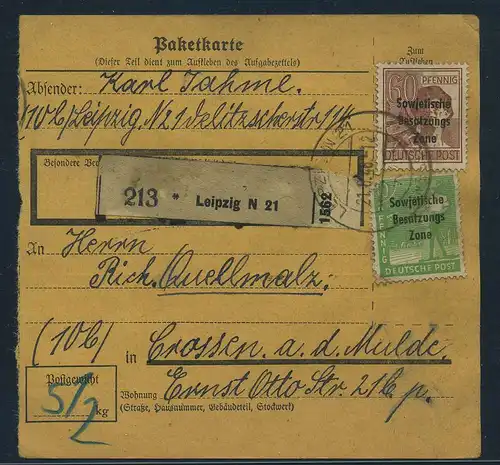 Paketkarte
(Dieser Teil dient zum Aufkleben des Aufgabezettels)
Zum
Absender: Karl Jahme.
(10b) Leipzig. N 21 Delitzscherstr 114
Besondere
213 * Leipzig N 21
1562
60 PFENNIG
Sowjetische
Besatzungs
Zone
DEUTSCHE POST
Sowjetische
Besatzungs
Zone
PFENNIG
DEUTSCHE POST
An Herrn
Rich. Quellmalz.
(10b) in Crossen a. d. Mulde.
Postgewicht
5 1/2 kg
Wohnung Ernst Otto Str. 21b p.
(Straße, Hausnummer, Gebäudeteil, Stockwerk)